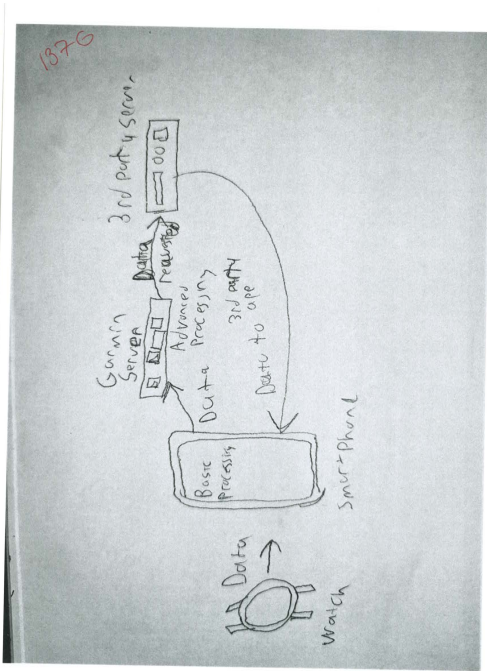 1376
Watch
Data
Basic
Processing
Smart Phone
Data
Garmin
Server
Advanced
Processing
Data
requested
3rd party server
3rd party
Data to ape